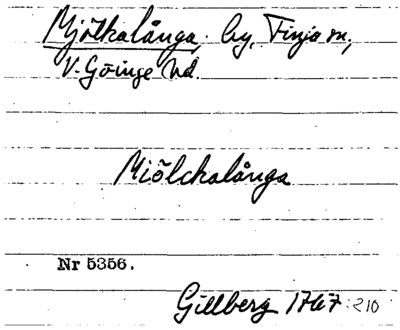 Mjölkalånga, by, Finja sn,
V. Göinge hd.
Miölckalånga
Nr 5356.
Gillberg 1767:210